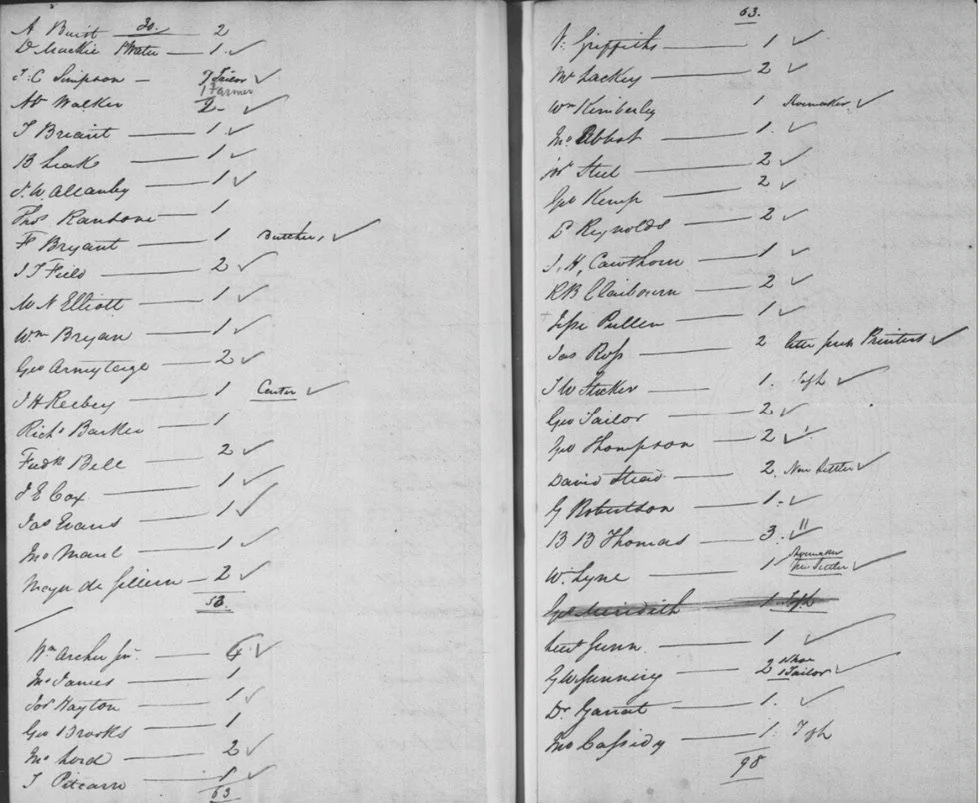 A Buist 30. 2
D Mackie 1 Water 1
J. C Simpson 7 Tailor
1 Farmer
Ab Walker 2
T Briant 1
B Leak 1
J. W Allanby 1
Thos Ransome 1
F Bryant 1 Butcher,
J T Field 2
W N Elliott 1
Wm Bryan 1
Geo Armytage 2
J H Reibey 1 Center
Richd Barker 1
Fredk Bell 2
J E Cox 1
Jas Evans 1
Jno Maul 1
Major de Gillern 2
53.
Wm Archer Jnr. 4
Jno James 1
Jos Hayton 1
Geo Brooks 1
Jno Lord 2
T Pitcairn 1
63
63.
V. Griffiths 1
Mr Lackey 2
Wm Kimberley 1 Shoemaker,
Jno Abbot 1.
Steel 2
Geo Kemp 2
D Reynolds 2
J. H, Cawthorn 1
R B Claibourn 2
Jesse Pullen 1
Jas Ross 2 letter press Printers
J W Sticker 1.
Geo Tailor 2
Geo Thompson 2
David Stead 2. New Settler
G Robertson 1.
B B Thomas 3. "
Shoemaker
W. Lyne 1 New Settler
Geo Meridith 1
Lieut Gunn 1
G W Gunning 2 1 Tailor
Dr Garrat 1.
Jno Cassidy 1.
98